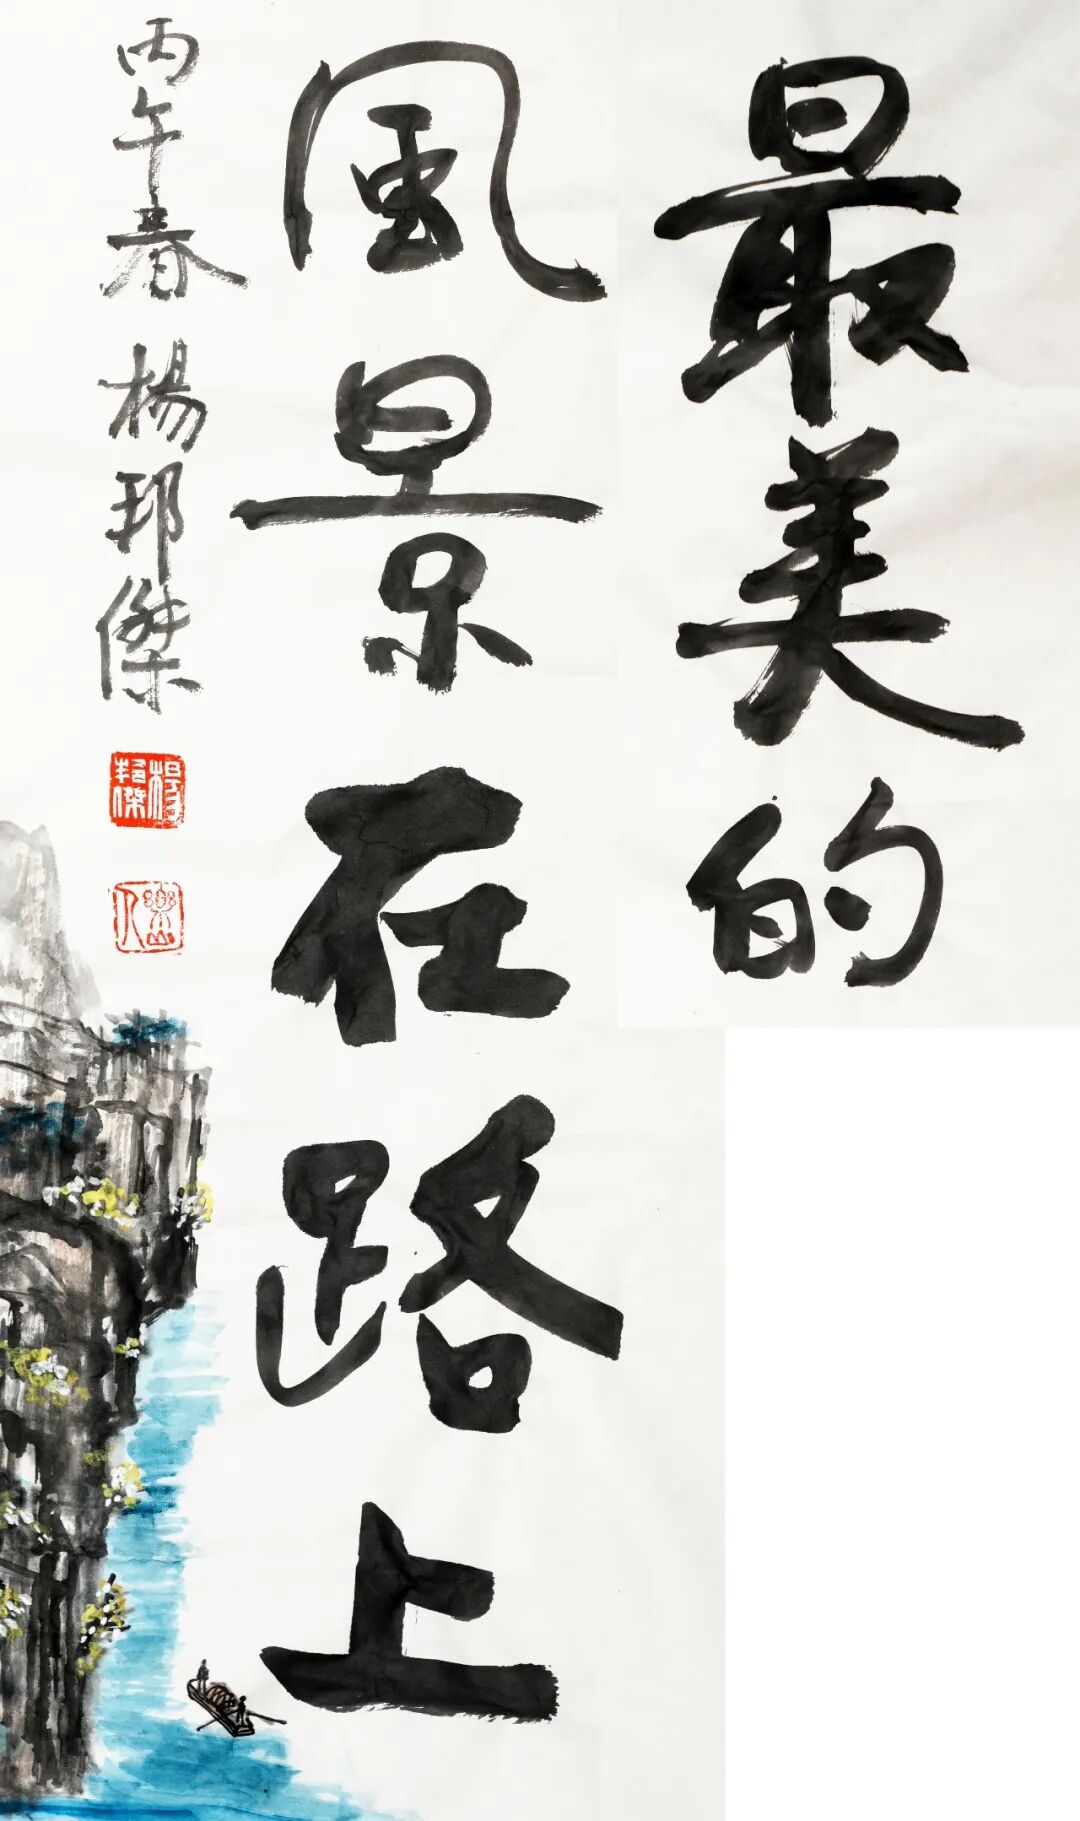 最美的
風景在路上
丙午春 楊邦傑
楊邦傑
樂山人